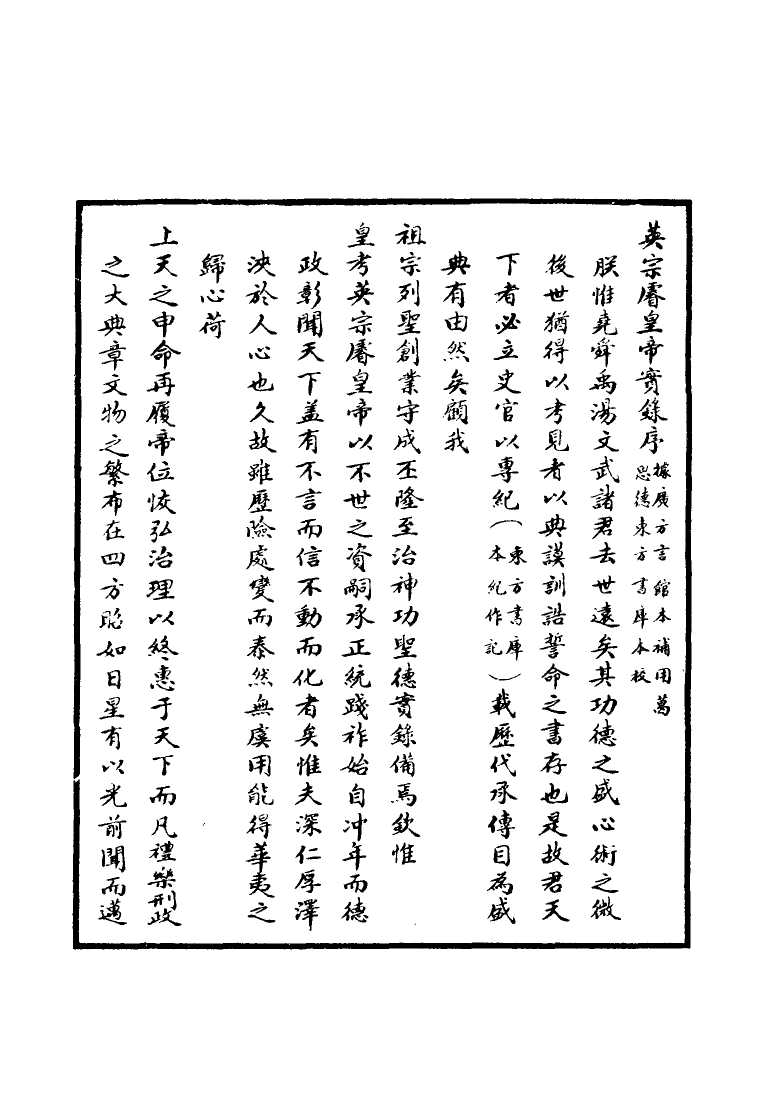 英宗睿皇帝實錄序據廣方言館本補用萬
思德東方書庫本校
朕惟堯舜禹湯文武諸君去世遠矣其功德之盛心術之微
後世猶得以考見者以典謨訓誥誓命之書存也是故君天
下者必立史官以專紀(東方書庫
本紀作記)載歷代承傳目為盛
典有由然矣顧我
祖宗列聖創業守成丕隆至治神功聖德實錄備焉欽惟
皇考英宗睿皇帝以不世之資嗣承正統踐祚始自冲年而德
政彰聞天下盖有不言而信不動而化者矣惟夫深仁厚澤
浹於人心也久故雖歷險處變而泰然無虞用能得華夷之
歸心荷
上天之申命再履帝位恢弘治理以終惠于天下而凡禮樂刑政
之大典章文物之繁布在四方昭如日星有以光前聞而邁